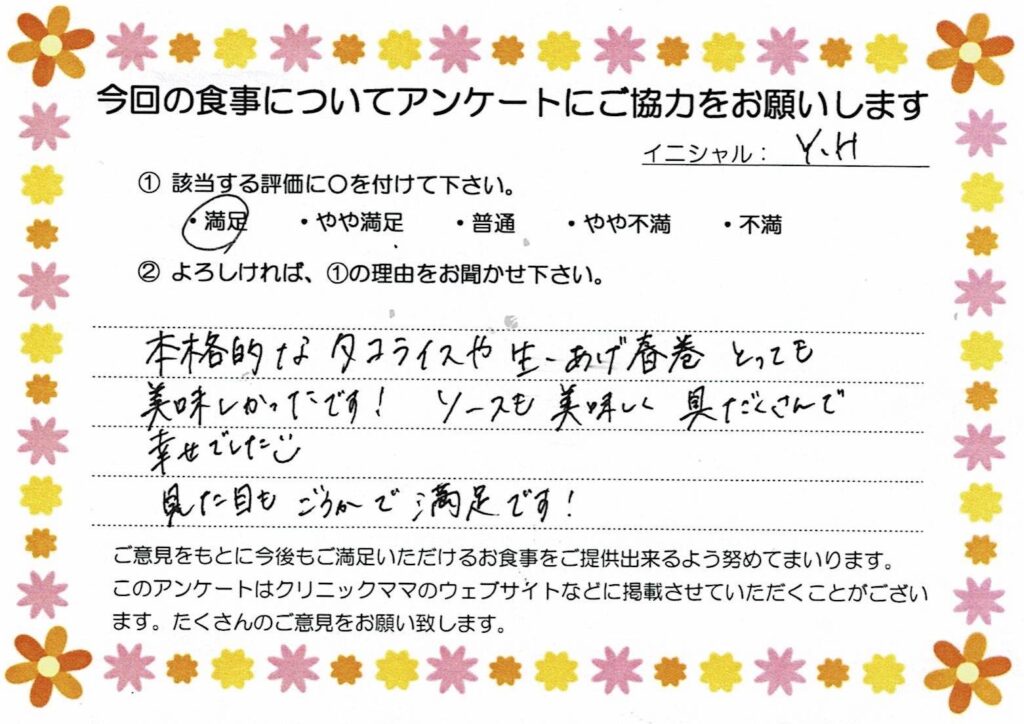 今回の食事についてアンケートにご協力をお願いします
イニシャル： Y.H
① 該当する評価に〇を付けて下さい。
・満足 ・やや満足 ・普通 ・やや不満 ・不満
② よろしければ、①の理由をお聞かせ下さい。
本格的なタコライスや生・あげ春巻 とっても
美味しかったです！ ソースも美味しく 具だくさんで
幸せでした
見た目もごうかで満足です！
ご意見をもとに今後もご満足いただけるお食事をご提供出来るよう努めてまいります。
このアンケートはクリニックママのウェブサイトなどに掲載させていただくことがござい
ます。たくさんのご意見をお願い致します。